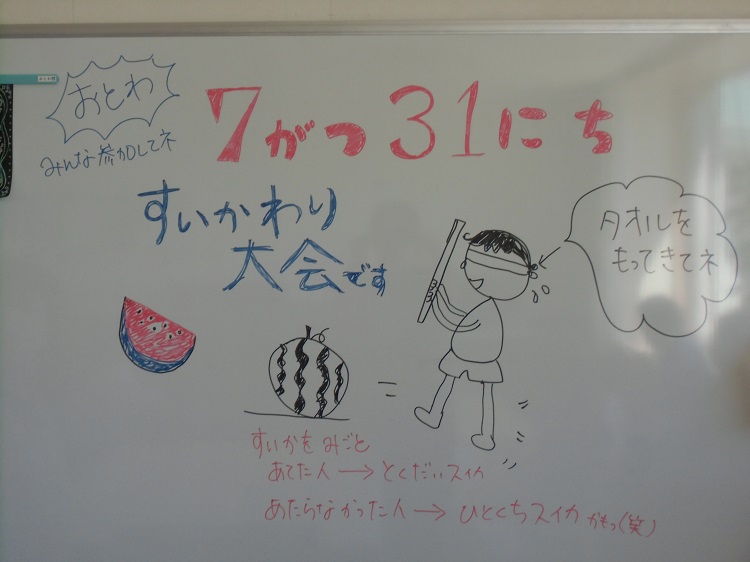 おとわ
みんな参加してネ
7がつ31にち
すいかわり
大会です
タオルを
もってきてネ
すいかをみごと
あてた人→とくだいスイカ
あたらなかった人→ひとくちスイカかもっ(笑)